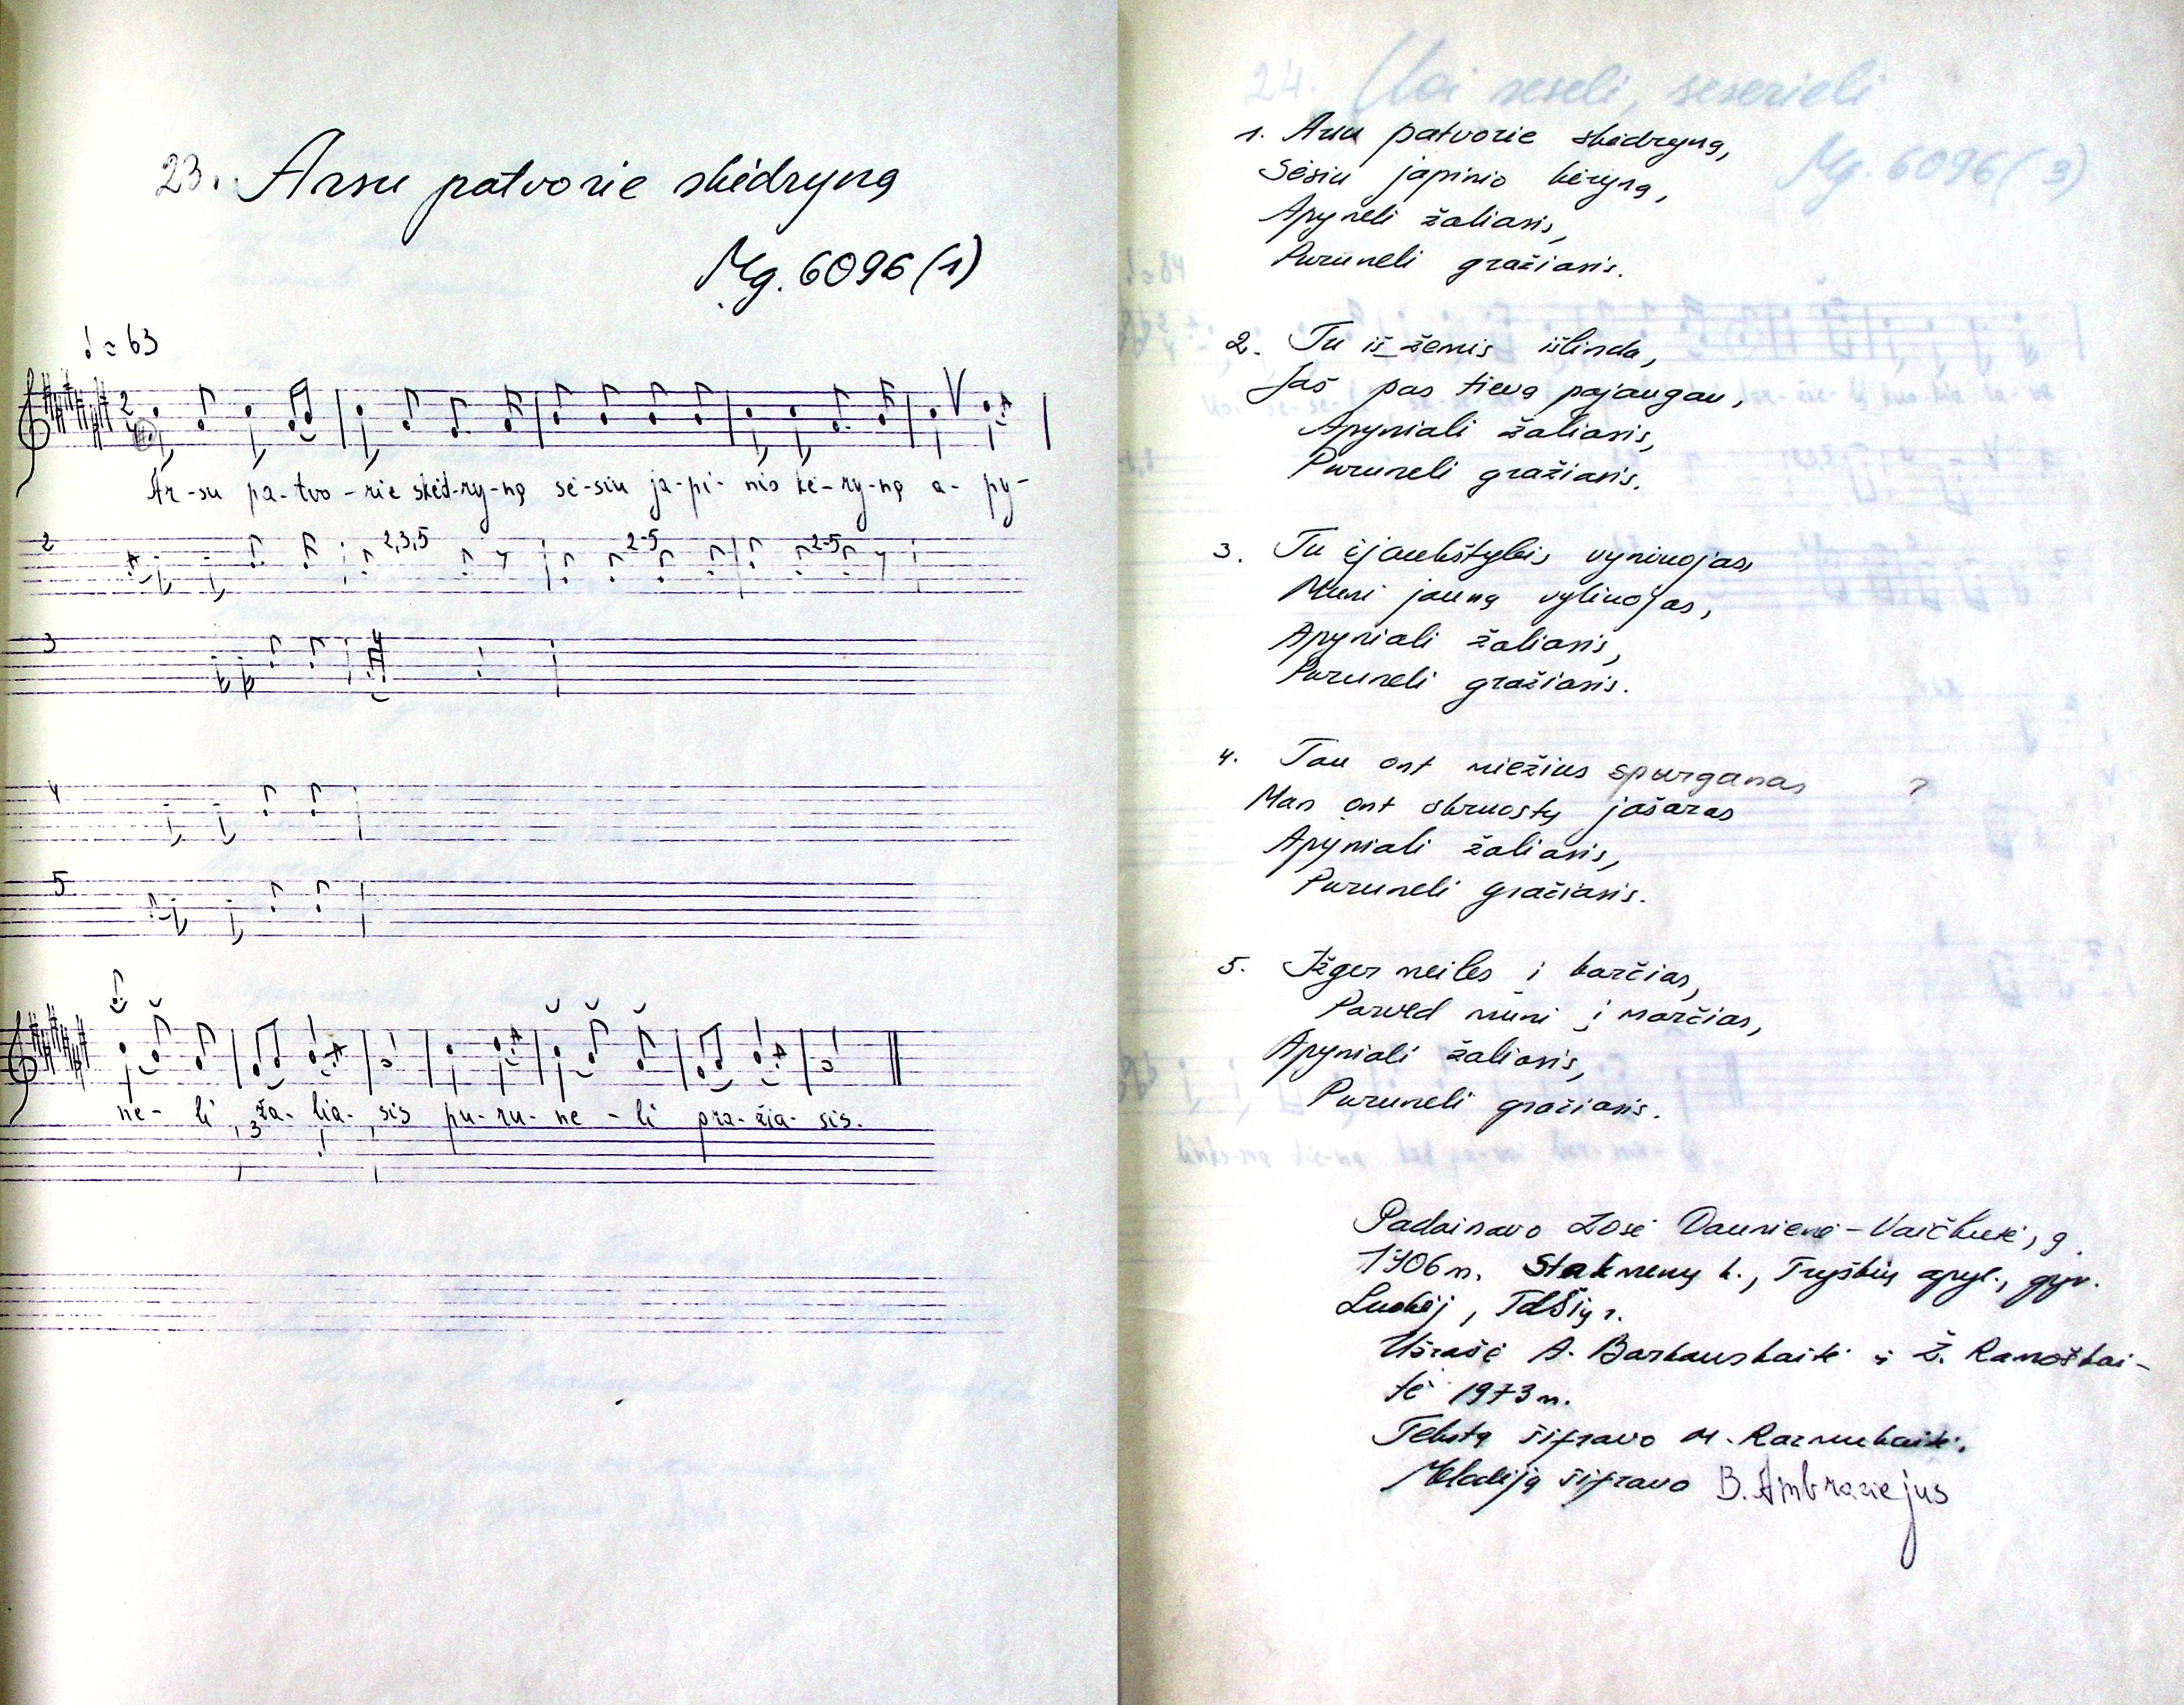 23. Arsu patvorie skėdryną
Mg. 6096 (1)
♩ = 63
2
Ar-su pa-tvo-rie skėd-ry-ną sė-siu ja-pi-nio kė-ry-ną a-py-
2 2,3,5 2-5 2-5
3 4
4
5
ne-li ža-lia-sis pu-ru-ne-li gra-žia-sis.
3
24. Uoi seseli, seserieli
Mg. 6096 (3)
1. Arsu patvorie skėdryną,
Sėsiu japinio kėryną,
Apyneli žaliasis,
Puruneli gražiasis.
2. Tu iš žemis išlinda,
Jaš pas tievą pajaugau,
Apyniali žaliasis,
Puruneli gražiasis.
3. Tu ėjaukštybis vyniuojas
Muni jauną vyliuojas,
Apyniali žaliasis,
Puruneli gražiasis.
4. Tau ont miežius spurganas ?
Man ont skruostų jašaras
Apyniali žaliasis,
Puruneli gražiasis.
5. Ižger meiles i karčias,
Parved muni į marčias,
Apyniali žaliasis,
Puruneli gražiasis.
Padainavo Zosė Daunienė-Vaičkutė, g.
1906 m. Stakmenų k., Tryškių apyl., gyv.
Luokėj, Telšių r.
Užrašė A. Barkauskaitė ir Ž. Ramoškai-
tė 1973 m.
Tekstą šifravo M. Razmukaitė.
Melodiją šifravo B. Ambraziejus